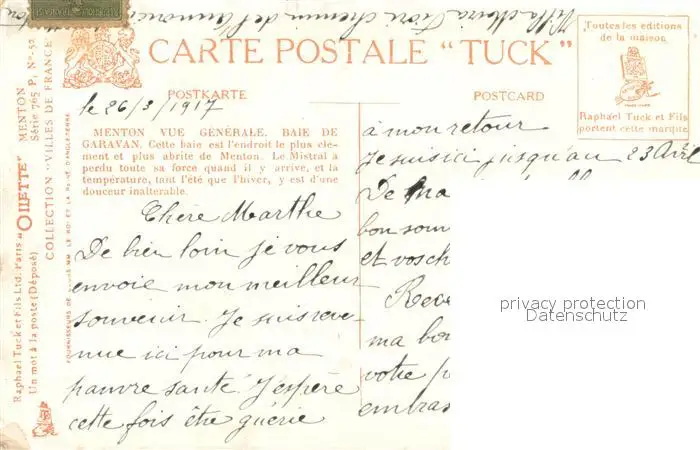 CARTE POSTALE "TUCK"
POSTKARTE
POSTCARD
Toutes les editions
de la maison
Raphael Tuck et Fils
portent cette marque
le 26/3/1917
MENTON VUE GENÉRALE. BAIE DE
GARAVAN. Cette baie est l'endroit le plus cle-
ment et plus abrite de Menton. Le Mistral a
perdu toute sa force quand il y arrive, et la
température, tant l'été que l'hiver, y est d'une
douceur inalterable.
Chère Marthe
De bien loin je vous
envoie mon meilleur
souvenir. Je suis reve-
nue ici pour ma
pauvre santé. J'espère
cette fois être guérie
à mon retour
Je suis ici jusqu'au 23 Avril
De ma
bon sou
et vos ch
Reve
ma bo
votre p
embras
Villa Maria Fiori chemin de l'
Raphael Tuck et Fils Ltd. Paris "OILETTE" MENTON
Un mot à la poste (Déposé) Série 765 P, Nº 52
COLLECTION "VILLES DE FRANCE"
FOURNISSEURS DE LE ROI ET LA REINE D'ANGLETERRE
privacy protection
Datenschutz